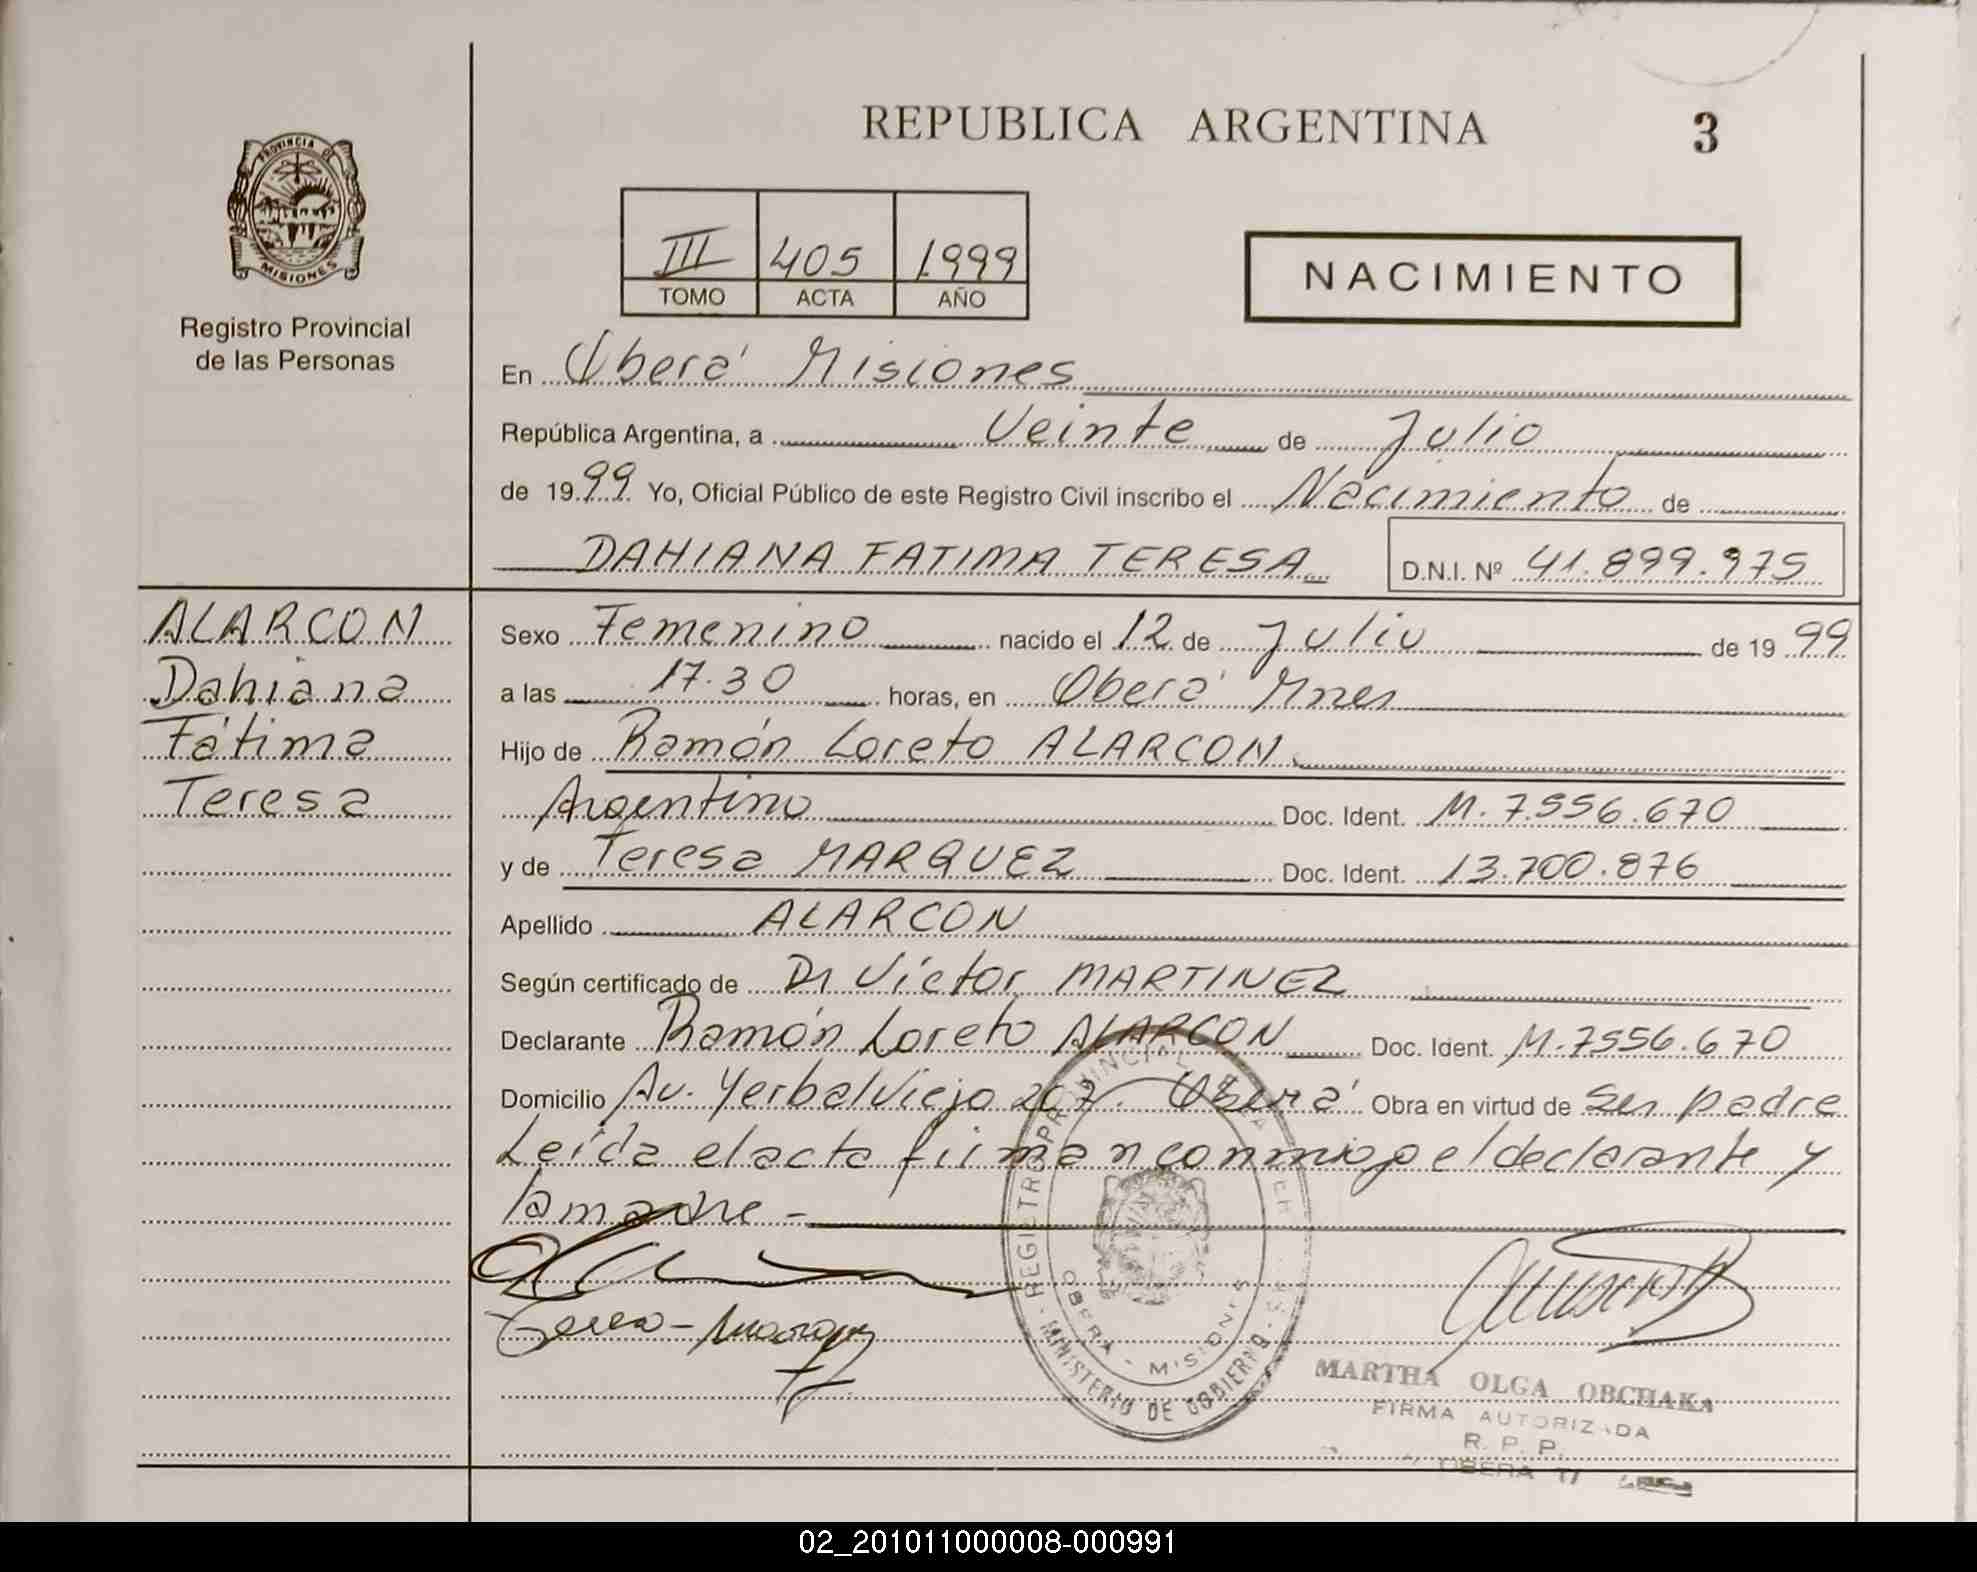 REPUBLICA ARGENTINA 3
PROVINCIA DE
MISIONES
Registro Provincial
de las Personas
III 405 1999
TOMO ACTA AÑO
NACIMIENTO
En Oberá Misiones
República Argentina, a Veinte de Julio
de 1999 Yo, Oficial Público de este Registro Civil inscribo el Nacimiento de
DAHIANA FATIMA TERESA D.N.I. Nº 41.899.975
ALARCON
Dahiana
Fátima
Teresa
Sexo Femenino nacido el 12 de Julio de 1999
a las 17.30 horas, en Oberá Mnes
Hijo de Ramón Loreto ALARCON
Argentino Doc. Ident. M. 7.556.670
y de Teresa MARQUEZ Doc. Ident. 13.700.876
Apellido ALARCON
Según certificado de Dr Víctor MARTINEZ
Declarante Ramón Loreto ALARCON Doc. Ident. M. 7556.670
Domicilio Av. Yerbal Viejo 207. Oberá Obra en virtud de Ser padre
Leída el acta firman conmigo el declarante y
la madre -
REGISTRO PROVINCIAL
OBERA - MISIONES
MINISTERIO DE GOBIERNO
MARTHA OLGA OBCHAKA
FIRMA AUTORIZADA
R. P. P.
OBERA
02_201011000008-000991